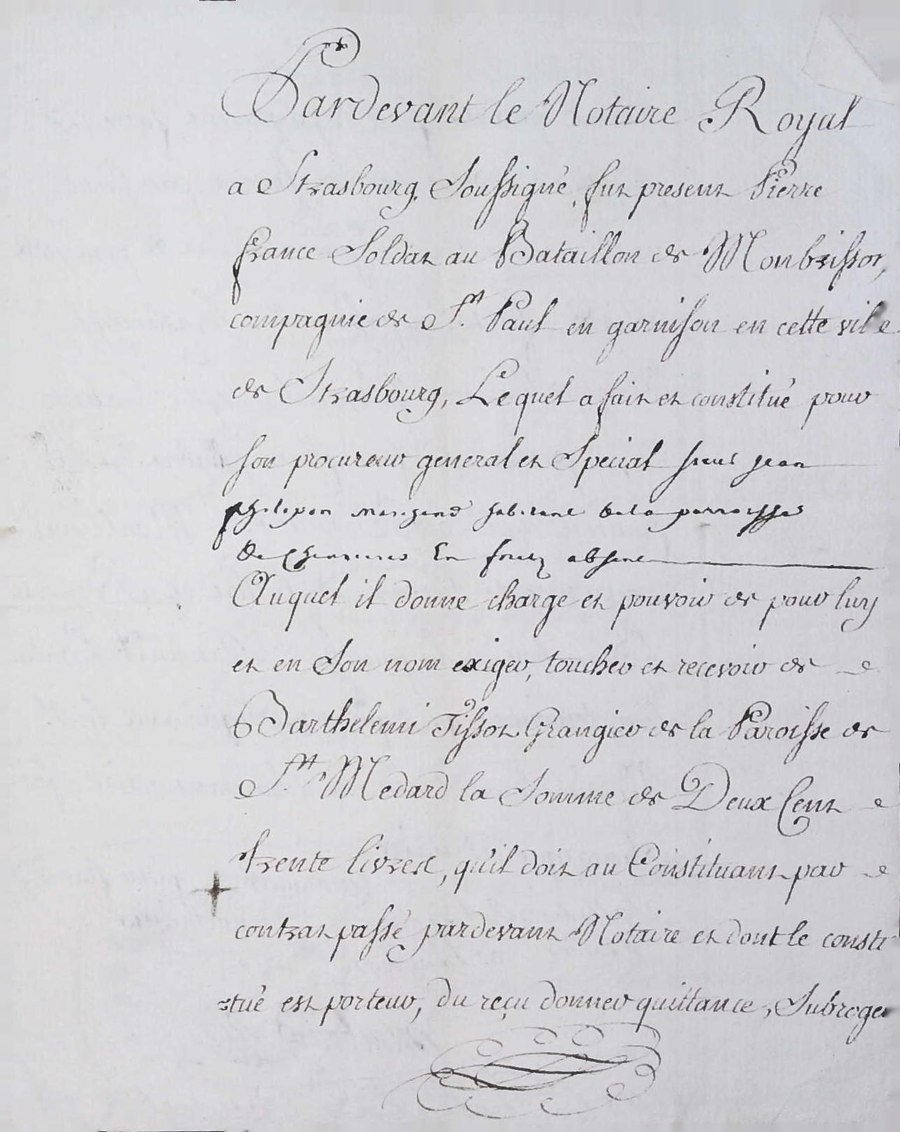 Pardevant le Notaire Royal
a Strasbourg Soussigné, fut present Pierre
france Soldat au Bataillon de Monbrisson,
compagnie de St. Paul en garnison en cette ville
de Strasbourg, Lequel a fait et constitué pour
son procureur general et Special sieur jean
philipon marchand habitant de la parroisse
de en forez absent
Auquel il donne charge et pouvoir de pour luy
et en Son nom exiger, toucher et recevoir de
Barthelemi Tissot Grangier de la Paroisse de
St. Medard la Somme de Deux Cent
trente livres, qu'il doit au Constituant par
contrat passé pardevant Notaire et dont le consti
tué est porteur, du reçu donner quittance, Subroger